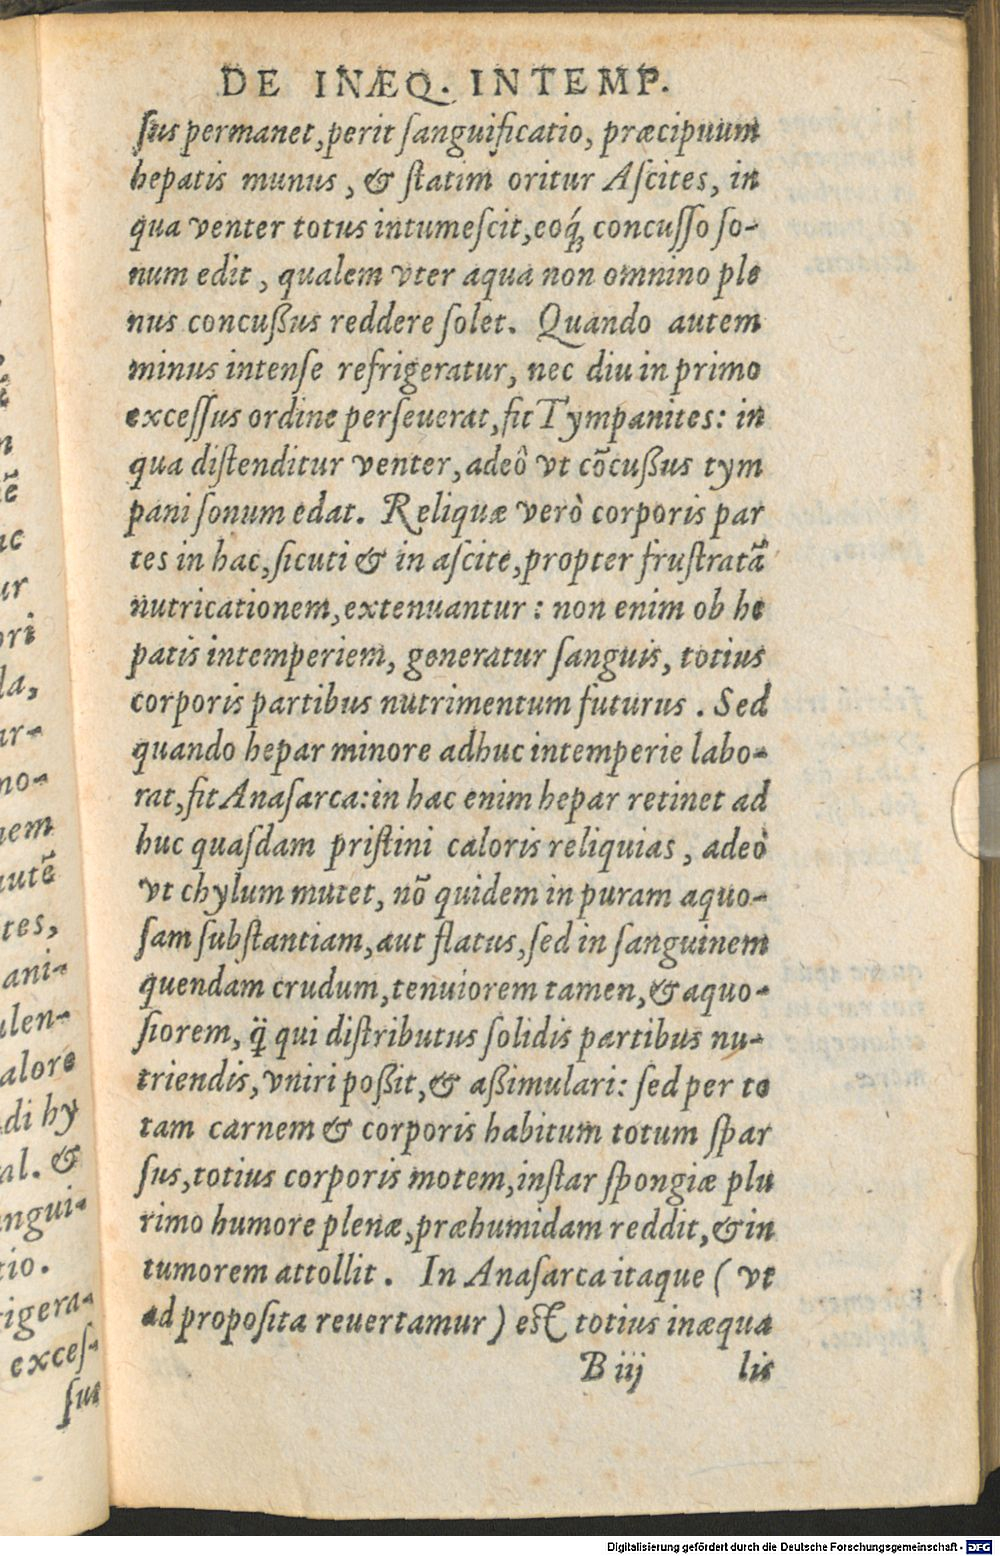 DE INÆQ. INTEMP.
ſus permanet, perit ſanguificatio, præcipuum
hepatis munus, & ſtatim oritur Aſcites, in
qua venter totus intumeſcit, eoq́; concuſſo ſo-
num edit, qualem vter aqua non omnino ple
nus concußus reddere ſolet. Quando autem
minus intenſe refrigeratur, nec diu in primo
exceſſus ordine perſeuerat, fit Tympanites: in
qua diſtenditur venter, adeô vt cōcußus tym
pani ſonum edat. Reliquæ verò corporis par
tes in hac, ſicuti & in aſcite, propter fruſtratã
nutricationem, extenuantur: non enim ob he
patis intemperiem, generatur ſanguis, totius
corporis partibus nutrimentum futurus. Sed
quando hepar minore adhuc intemperie labo-
rat, fit Anaſarca: in hac enim hepar retinet ad
huc quaſdam priſtini caloris reliquias, adeò
vt chylum mutet, nō quidem in puram aquo-
ſam ſubſtantiam, aut flatus, ſed in ſanguinem
quendam crudum, tenuiorem tamen, & aquo-
ſiorem, q̈ qui diſtributus ſolidis partibus nu-
triendis, vniri poßit, & aßimulari: ſed per to
tam carnem & corporis habitum totum ſpar
ſus, totius corporis motem, inſtar ſpongiæ plu
rimo humore plenæ, præhumidam reddit, & in
tumorem attollit. In Anaſarca itaque (vt
ad propoſita reuertamur) eſt totius inæqua
B iij lis
la,
ar-
mo-
tes,
ani-
ulen-
alore
di hy
al. &
ngui-
tio.
rigera-
exceſ-
ſus
Digitalisierung gefördert durch die Deutsche Forschungsgemeinschaft - DFG